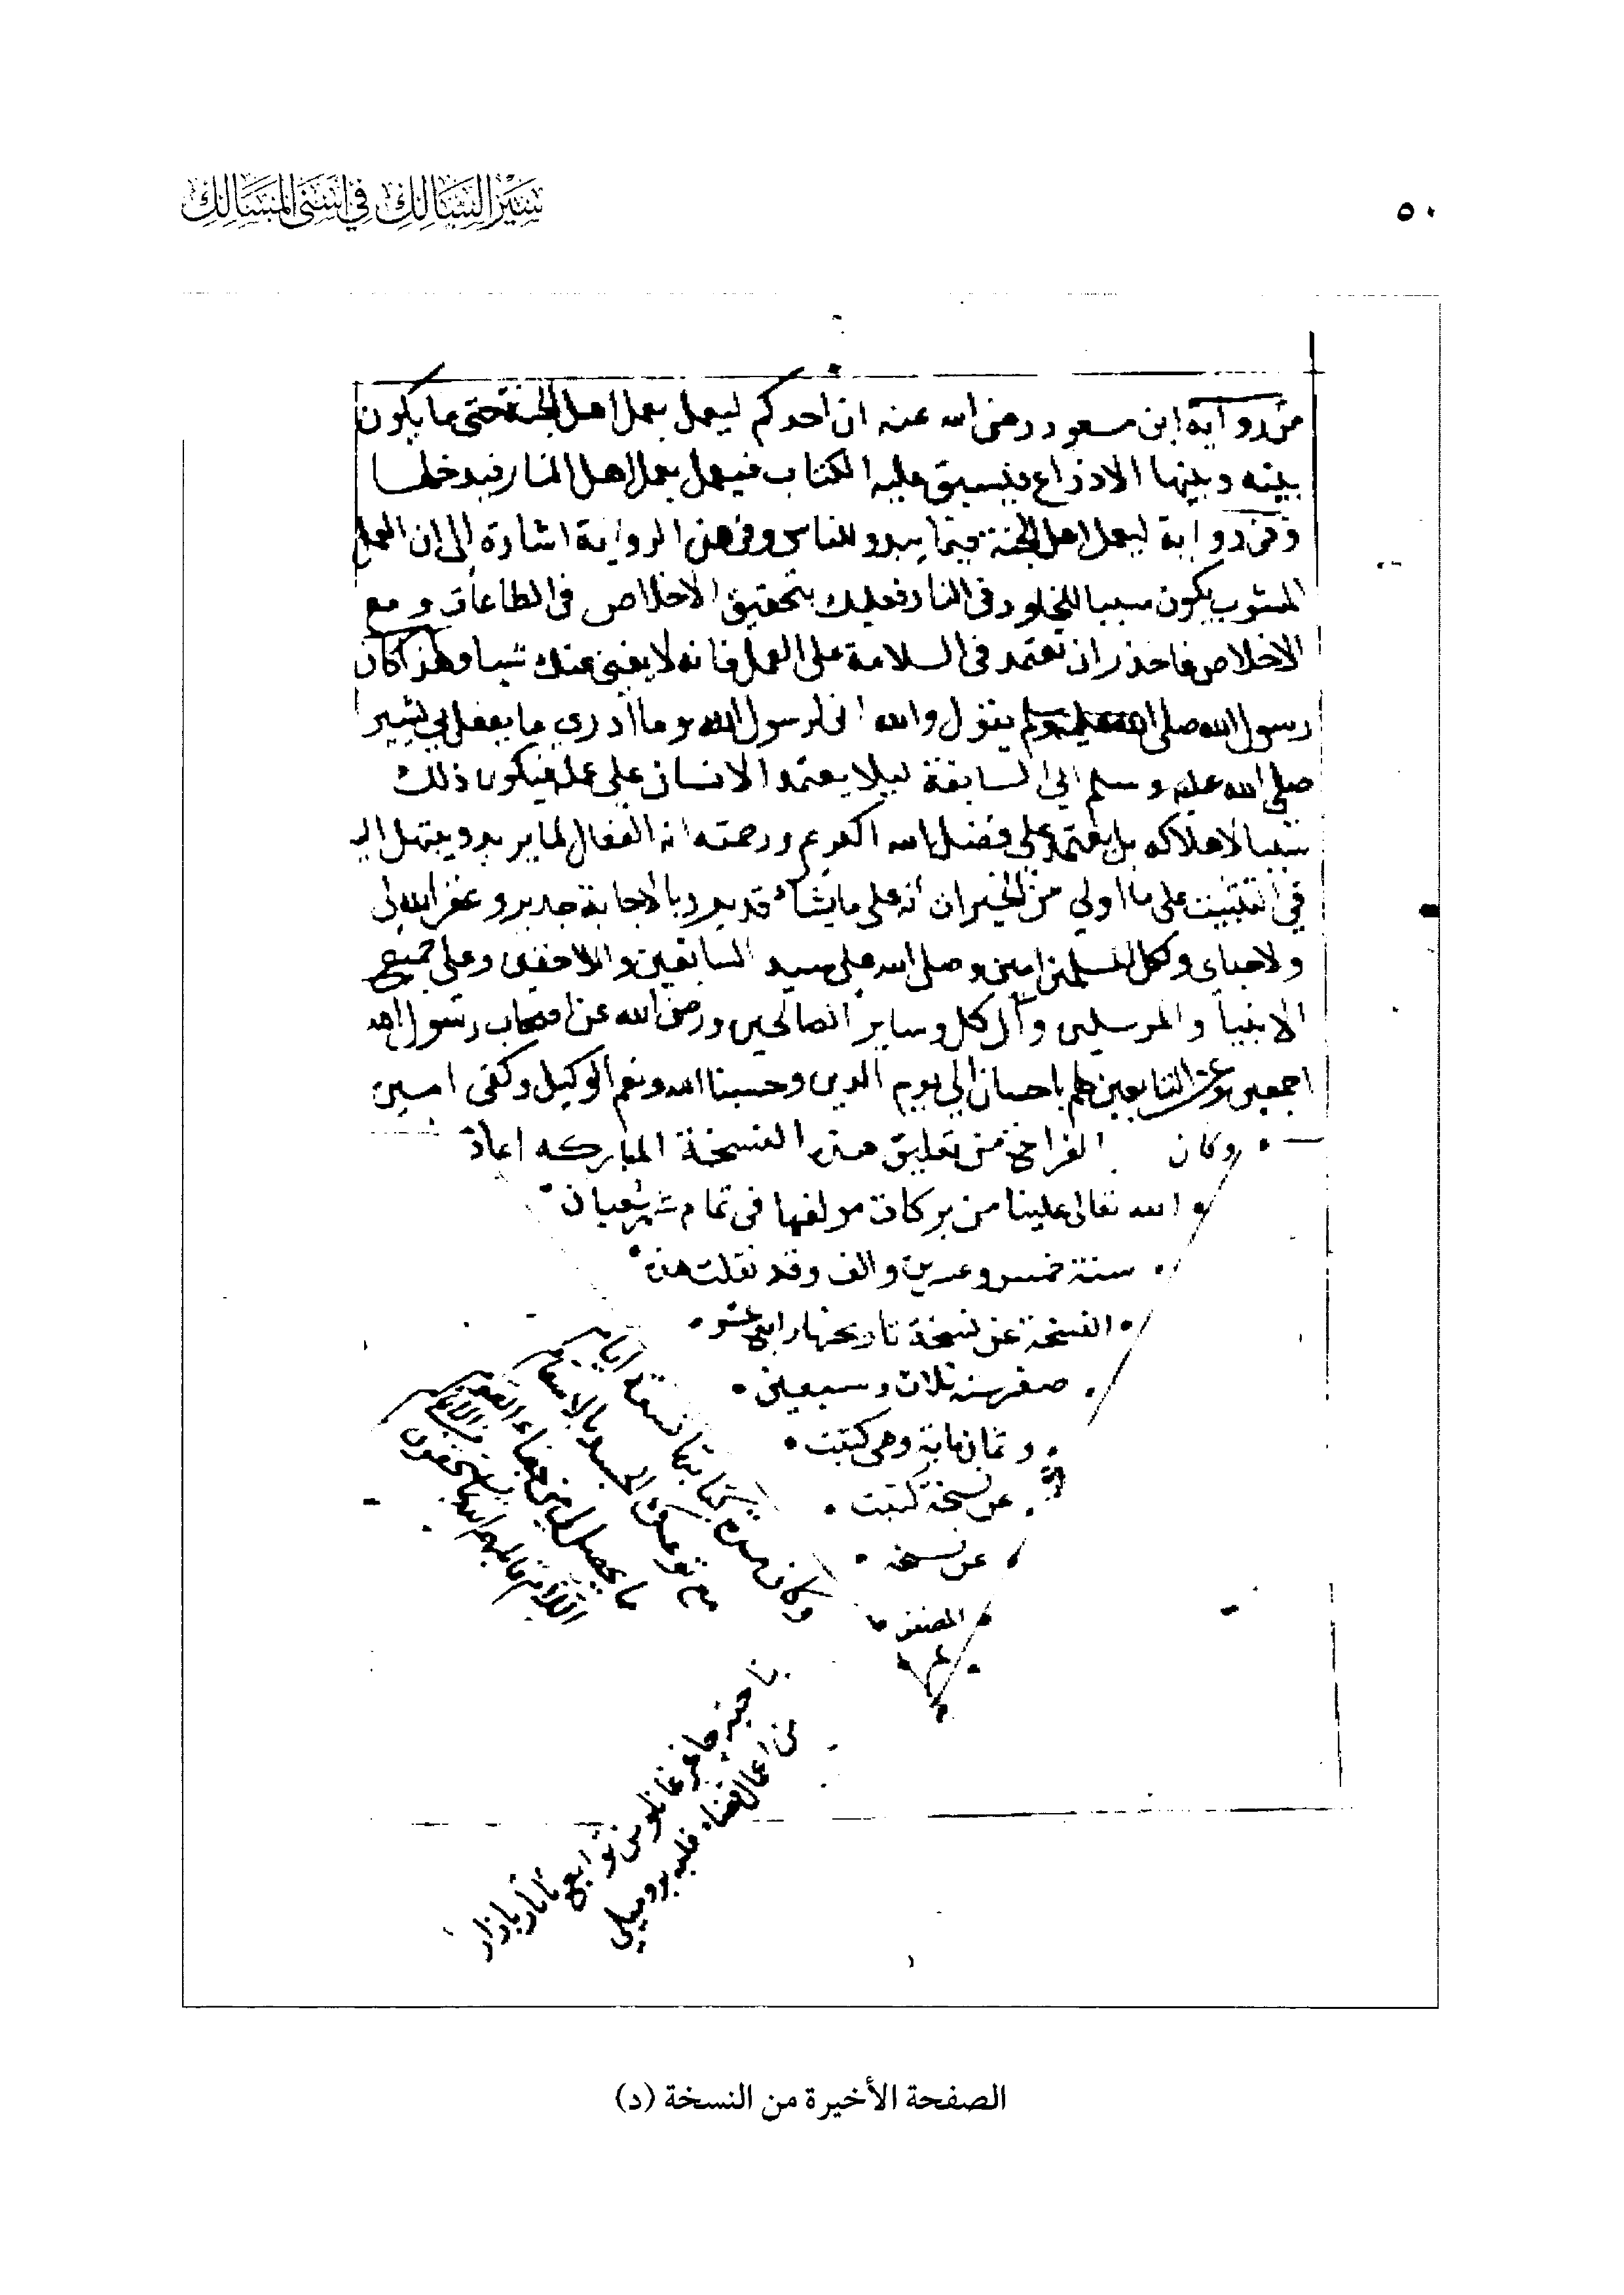 ٥٠
سير السالك في أسنى المسالك
من رواية ابن مسعود رضى الله عنه ان احدكم ليعمل بعمل اهل الجنة حتى ما يكون
بينه وبينها الا ذراع فيسبق عليه الكتاب فيعمل بعمل اهل النار فيدخلها
وفى رواية ليعمل اهل الجنة فيما يبدو للناس وفى هذه الرواية اشارة الى ان العمل
المشوب يكون سببا للخلود فى النار فعليك بتحقيق الاخلاص فى الطاعات ومع
الاخلاص فاحذر ان تعتمد فى السلامة على العمل فانه لا يغنى عنك شيا ولهذا كان
رسول الله صلى الله عليه وسلم يقول والله انى لرسول الله وما أدري ما يفعل بي يشير
صلى الله عليه وسلم الي السابقة ليلا يعتمد الانسان على عمله فيكون ذلك
سببا لاهلاكه بل يعتمد على فضل الله الكريم ورحمته انه الفعال لما يريد ويبتهل اليه
في التثبيت على ما اولي من الخير ان انه على ما يشاء قدير وبالاجابة جدير وغفر الله لى
ولاحباى ولكل المسلمين امين وصلى الله على سيد السابقين واللاحقين وعلى جميع
الانبيا والمرسلين وآل كل وساير الصالحين ورضى الله عن اصحاب رسول الله
اجمعين وعن التابعين لهم باحسان الي يوم الدين وحسبنا الله ونعم الوكيل وكفى امين
وكان الفراغ من تعليق هذه النسخة المباركه اعاد
الله تعالى علينا من بركات مولفها فى تمام شهر شعبان
سنة خمس وعشرين والف وقد نقلت هذه
النسخة عن نسخة تاريخها رابع عشر
صفر سنه ثلاث وسبعين
وثمان ماية وهى كتبت
عن نسخة كتبت
عن نسخه
المصنف
وكانت مدة كتابتها تسعة ايام
مع توعك الجسد بالاسقام
ما يحصل لى من
من اعمال قضاء فلبه
الصفحة الأخيرة من النسخة (د)